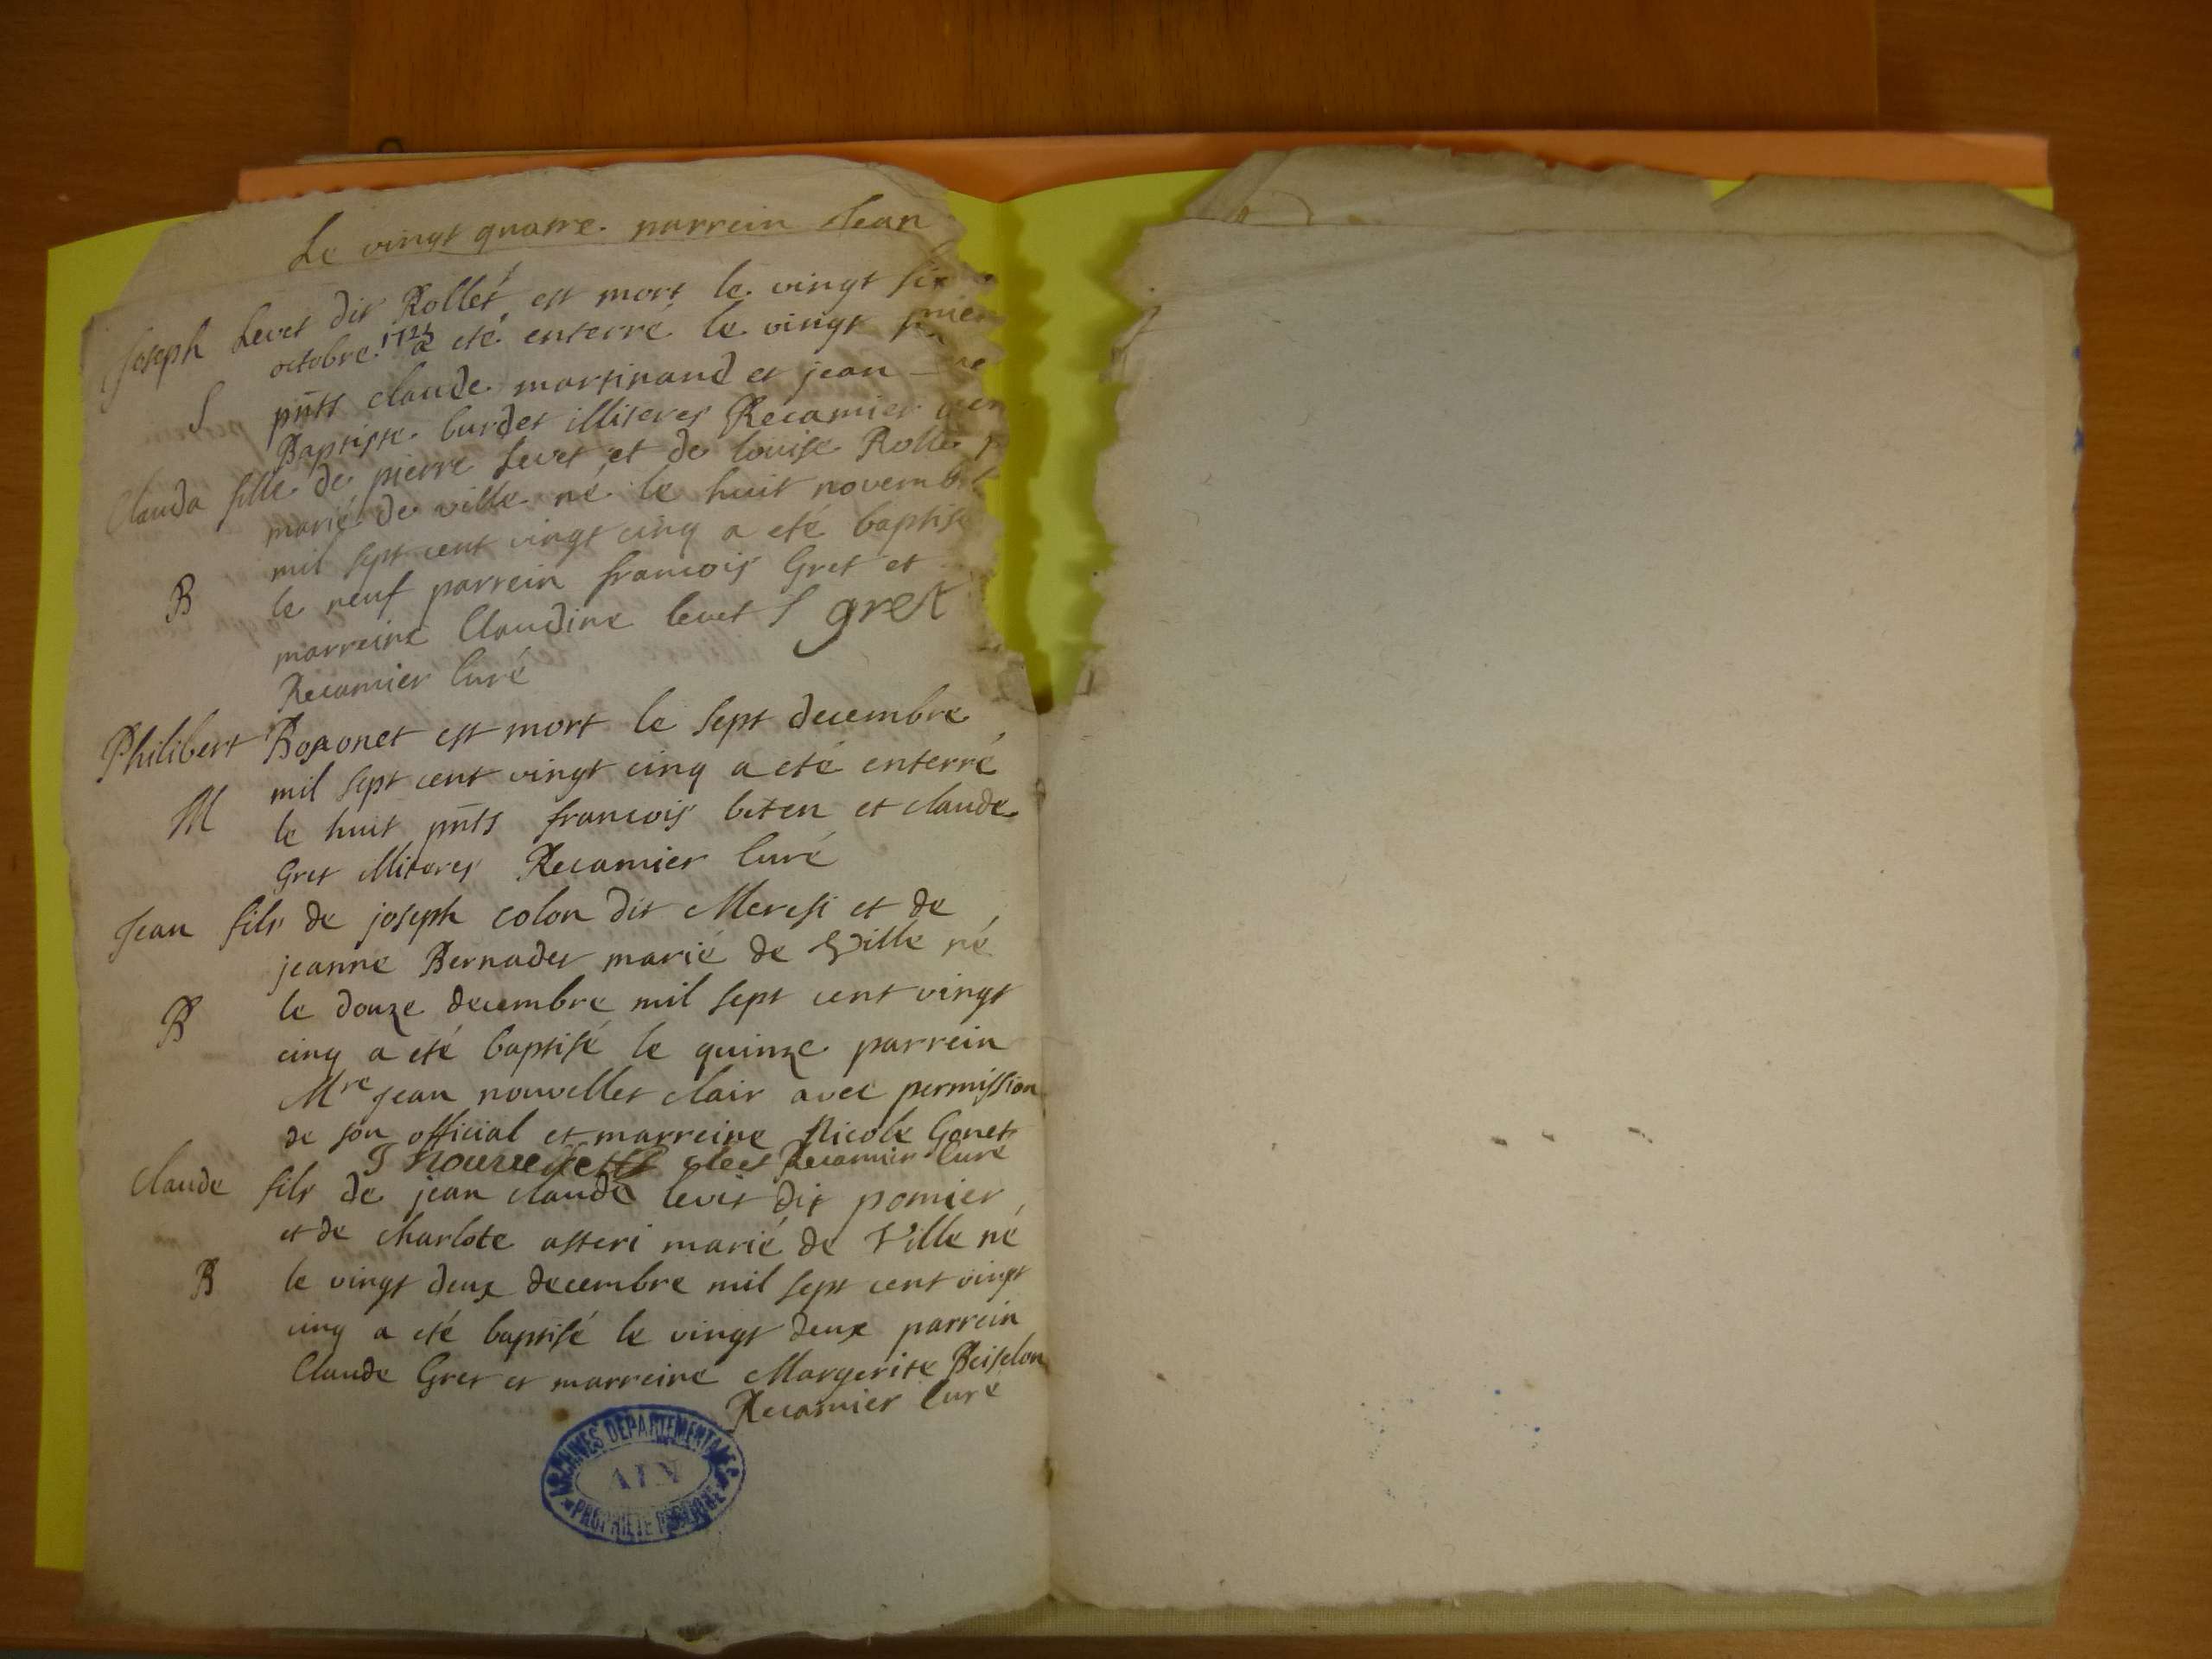 Le vingt quatre. parrein Jean
Joseph Levet dit Rollet est mort le vingt six
octobre 1725 a eté enterré le vingt
S pnts claude martinand et jean
Baptiste burdet illiteres Recamier
Clauda fille de pierre Levet et de louise Rollet
marié de ville né le huit novembre
mil sept cent vingt cinq a eté baptisé
B le neuf parrein francois Gret et
marreine Claudine levet f gret
Recamier Curé
Philibert est mort le sept decembre
mil sept cent vingt cinq a eté enterré
M le huit pnts francois et claude
Gret illiteres Recamier Curé
Jean fils de joseph colon dit Meresi et de
jeanne Bernadet marié de Ville né
B le douze decembre mil sept cent vingt
cinq a eté baptisé le quinze parrein
Mre Jean nouvellet clair avec permission
de son official et marreine Nicole Genet
J Recamier Curé
Claude fils de jean claude levit dit pomier
et de charlote asteri marié de Ville né
B le vingt deux decembre mil sept cent vingt
cinq a eté baptisé le vingt deux parrein
Claude Gret et marreine Margerite
Recamier Curé
ARCHIVES DEPARTEMENTALES
AIN
PROPRIETE PUBLIQUE